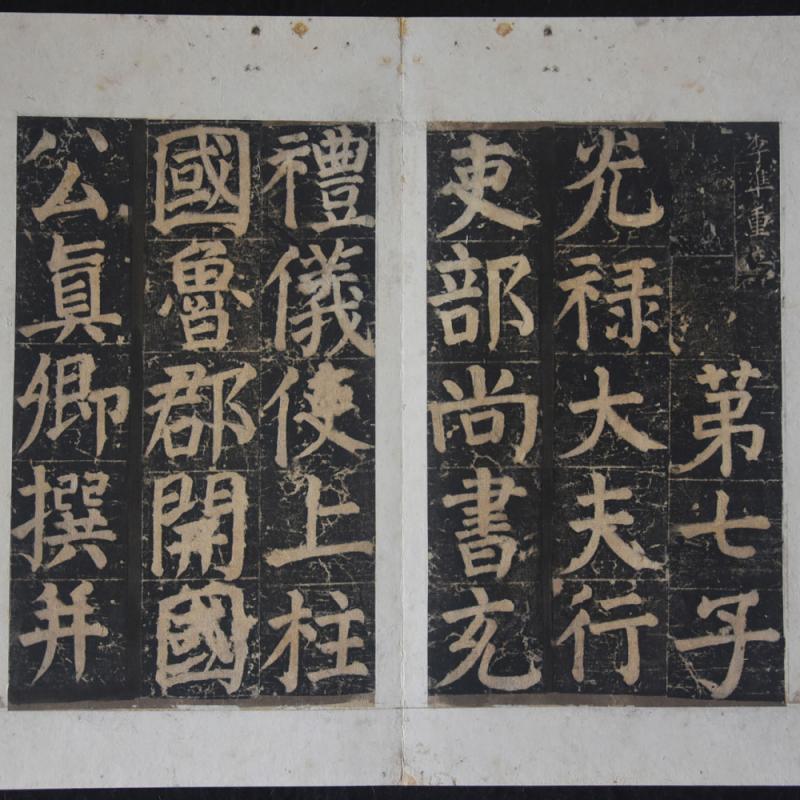 第七子
光禄大夫行
吏部尚書充
禮儀使上柱
國魯郡開國
公真卿撰并